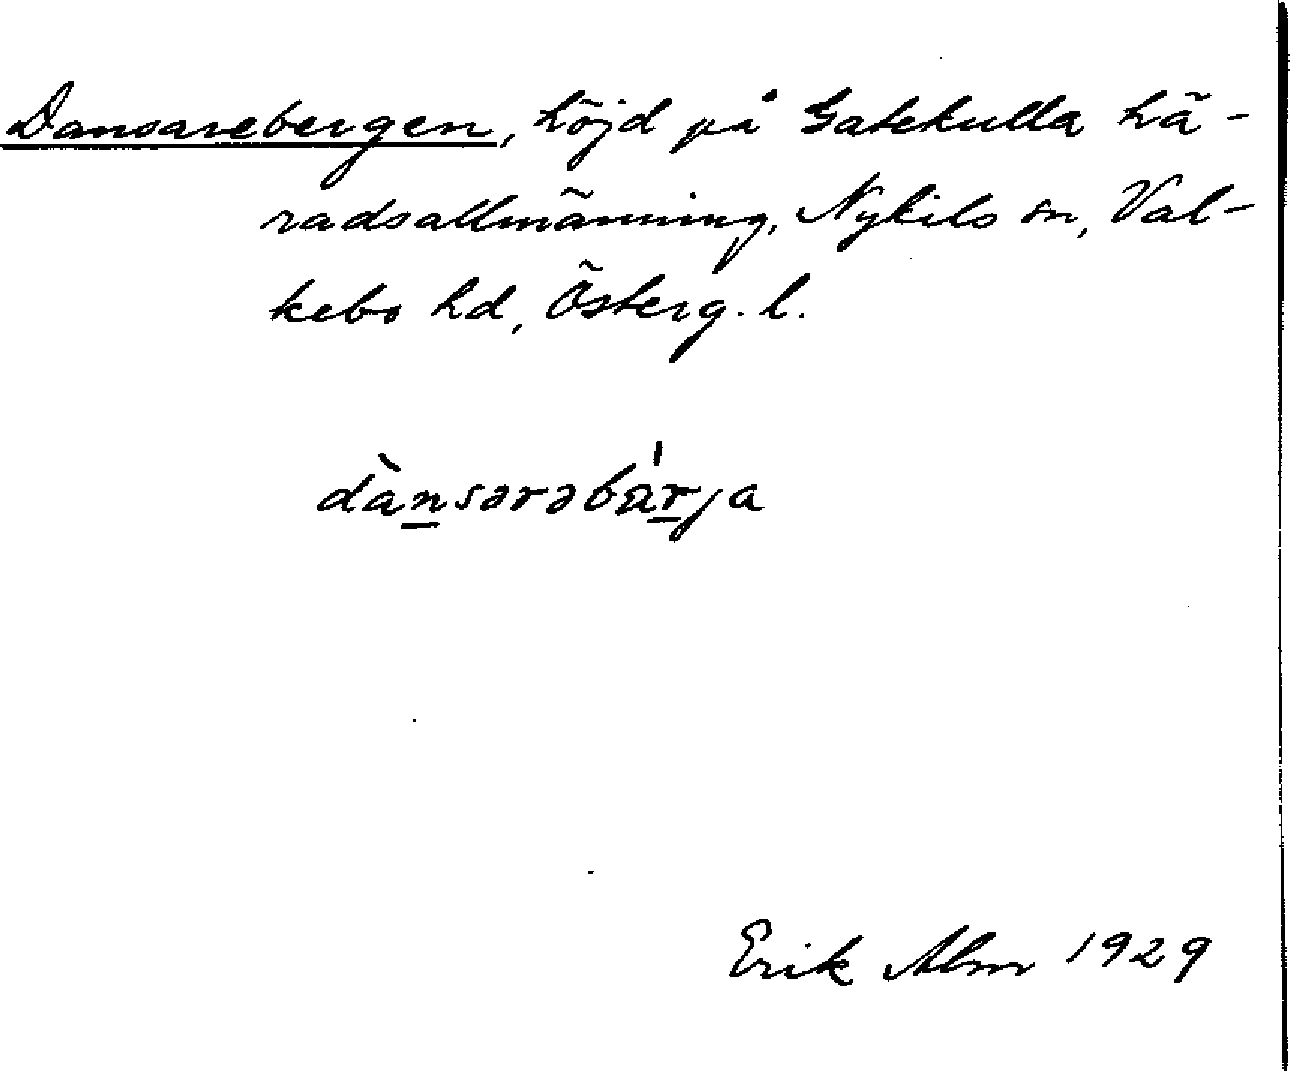 Dansarebergen, höjd på Gatekulla hä-
radsallmänning, Nykils sn, Val-
kebo hd, Österg. l.
dànsərəbá̱rja
Erik Alm 1929